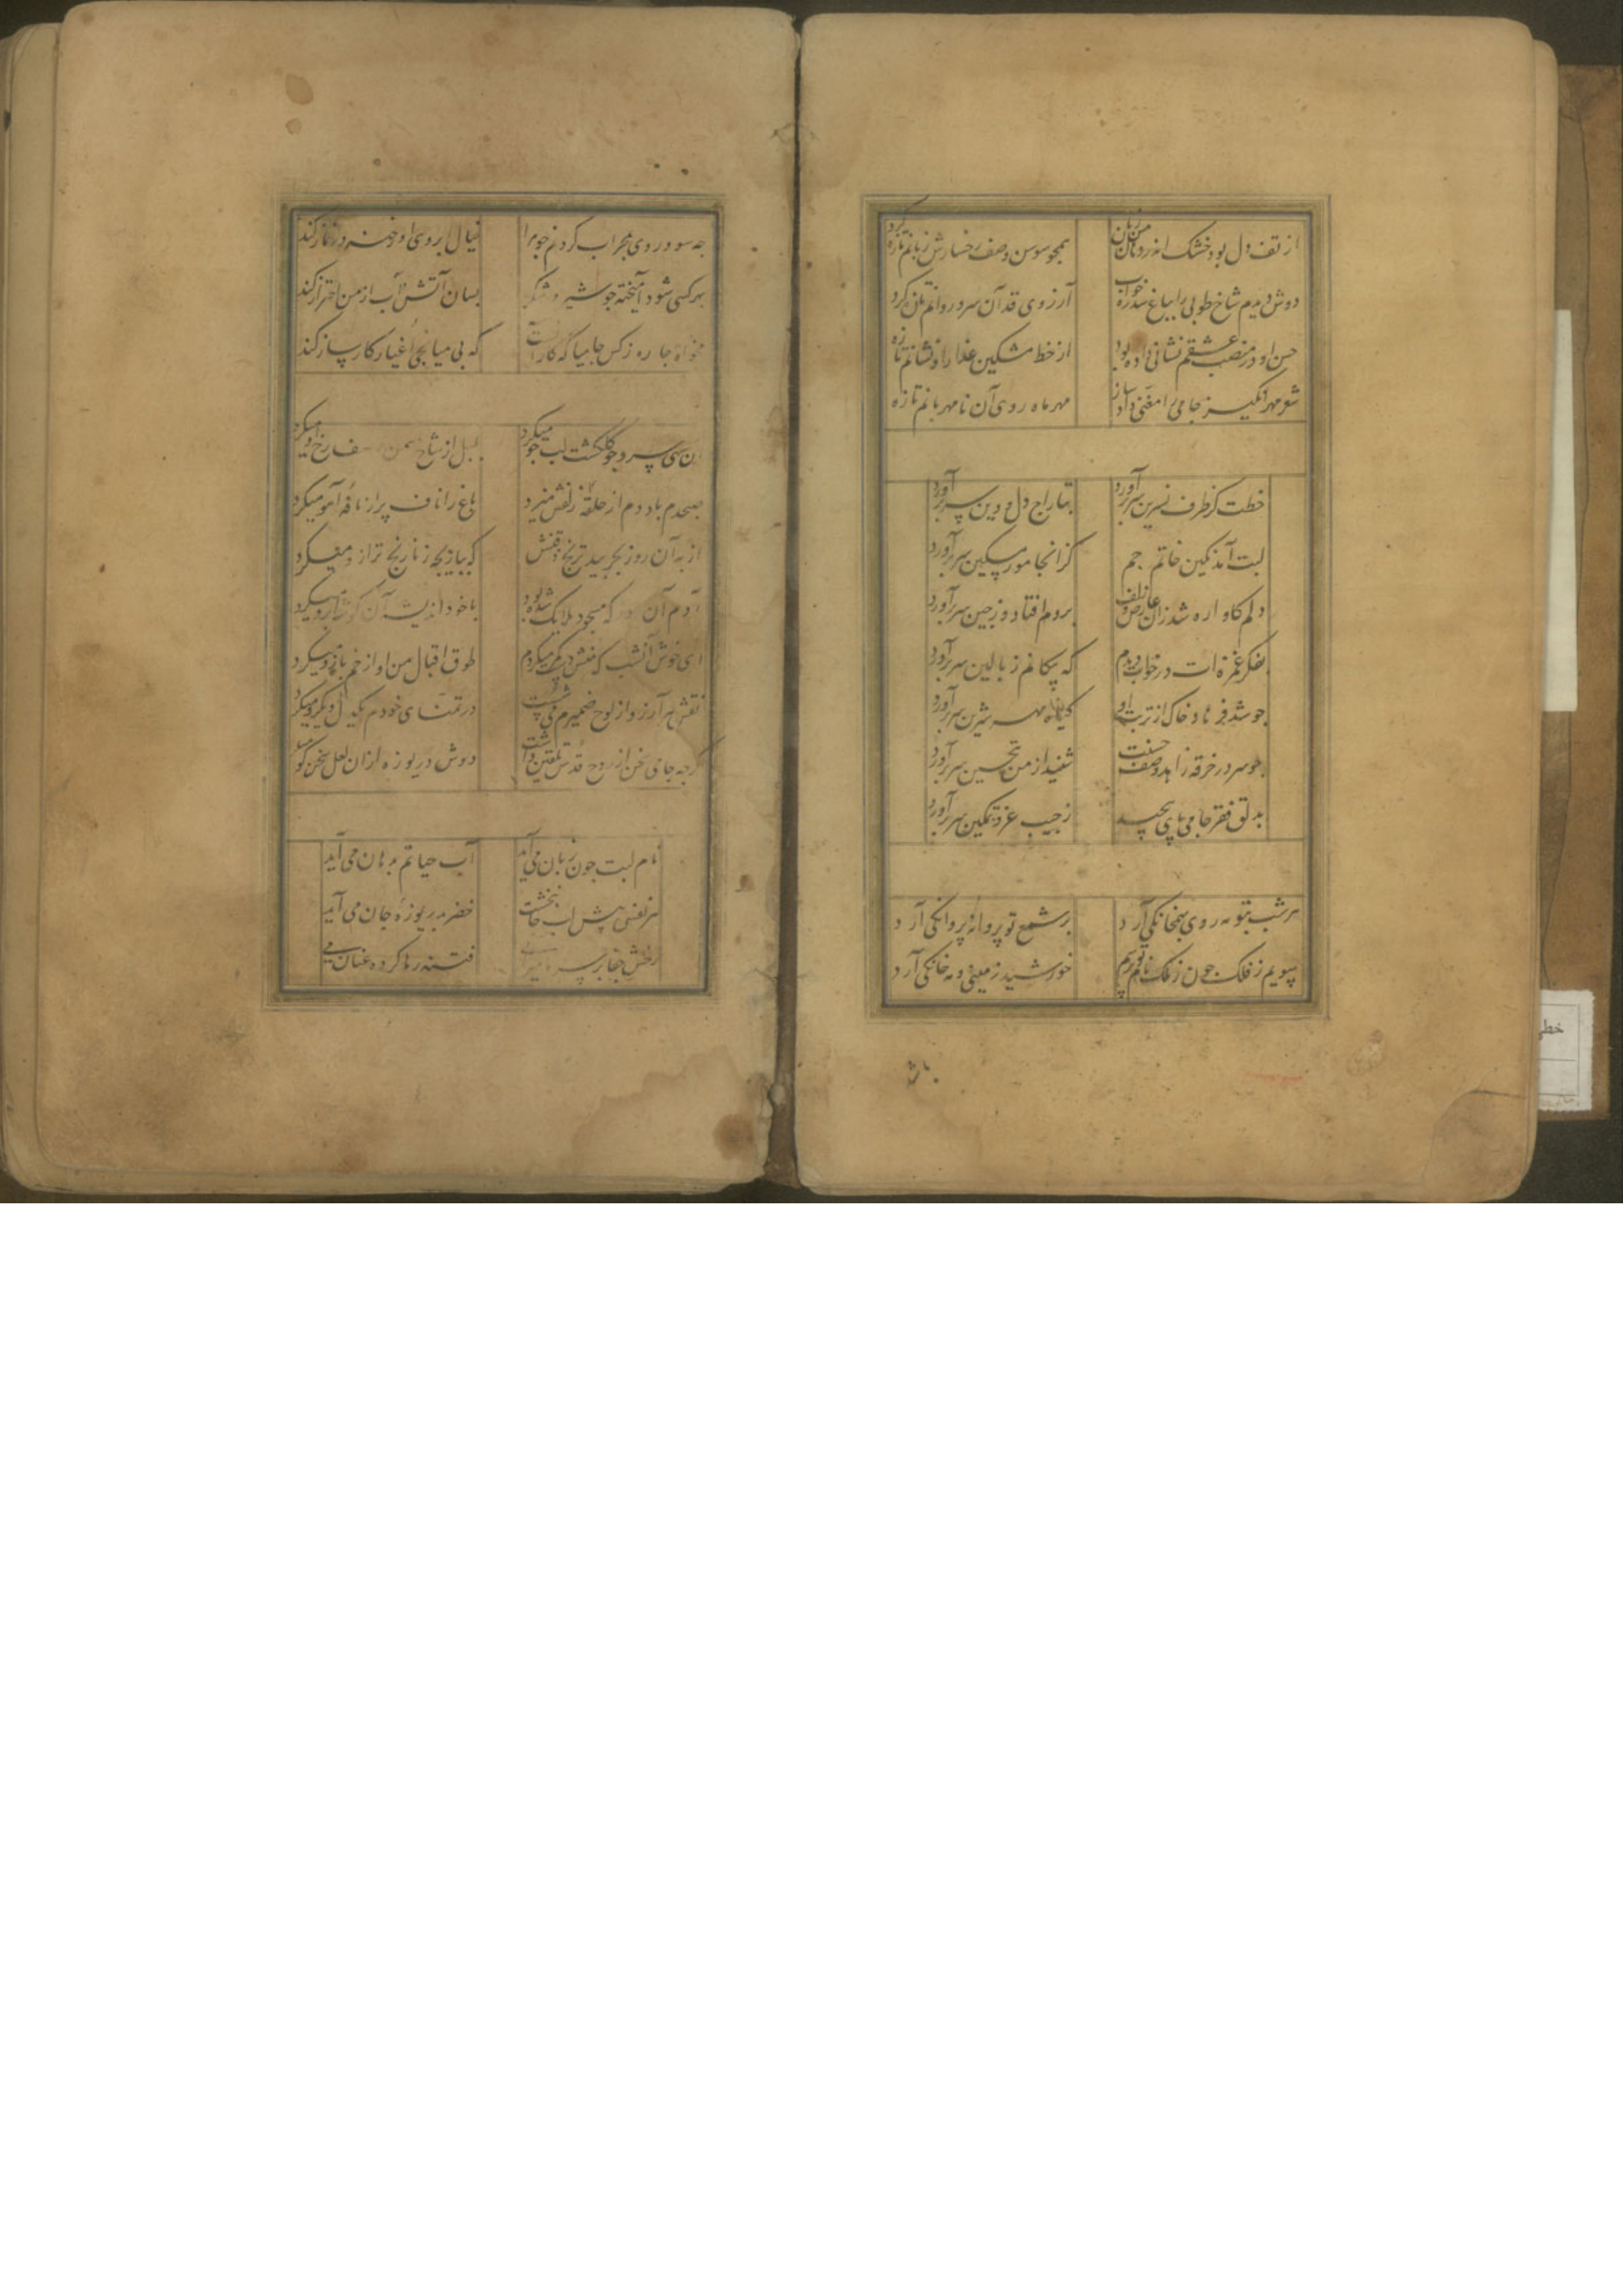 از تف دل بود خشک اندر دهان من زبان
همچو سوسن وصف رخسارش زبانم تازه کرد
دوش دیدم شاخ طوبی را بباغ سدره خواب
آرزوی قد آن سرو روانم تازه کرد
حسن او در منصب عشقم نشانی داده بود
از خط مشکین عذار او نشانم تازه
شعر مهرانگیز جامی را مغنی داد ساز
مهر ماه روی آن نامهربانم تازه
خطت کز طرف نسرین سر برآورد
بتاراج دل و دین سر برآورد
لبت آمد نکین خاتم جم
کز انجا مور مسکین سر برآورد
دلم کاواره شد زان عارض و زلف
بروم افتاد و ز چین سر برآورد
بفکر غمزه ات در خواب دیدم
که پیکانم ز بالین سر برآورد
چو شد فرهاد خاک از تربت او
گیاه مهر شیرین سر برآورد
فرو سر در خرقه زاهد وصف حسنت
شنید از من بتحسین سر برآورد
بدلق فقر جامی پای پیچید
ز جیب عز و تمکین سر برآورد
هر شب بتو مه روی بهمخانکی آرد
بر شمع تو پروانه پروانکی آرد
خورشید زمینی و مه خانکی آرد
چه سود روی بمحراب کردنم چو مرا
خیال ابروی او رخنه در نماز کند
بهر کسی شود آمیخته چو شیر و شکر
بسان آتش و آب از من احتراز کند
که بی میانجی اغیار کار ساز کند
سهی سرو چو گلگشت لب جو میکرد
بلبل از شاخ سمن وصف رخ او میکرد
صبحدم باد دم از حلقه زلفش میزد
باغ را ناف پر از نافه آهو میکرد
از به آن روز بچربید ترنج ذقنش
که ببازیچه ز نارنج ترازو میکرد
آدم آن روز که مسجود ملایک شده بود
با خود اندیشه آن گوشه ابرو میکرد
ای خوش آنشب که منش دست کمر میکردم
طوق اقبال من او از خم بازو میکرد
نقش هر آرزو از لوح ضمیرم می شست
در تمنای خودم یکدل و یکرو میکرد
گرچه جامی سخن از روح قدس تلقین داشت
دوش دریوزه ازان لعل سخن گو
نام لبت چون بزبان می آید
آب حیاتم بدهان می آید
هر نفسی پیش لب جانبخشت
خضر بدریوزه جان می آید
رخش جفا بر سر
فتنه رها کرده عنان می